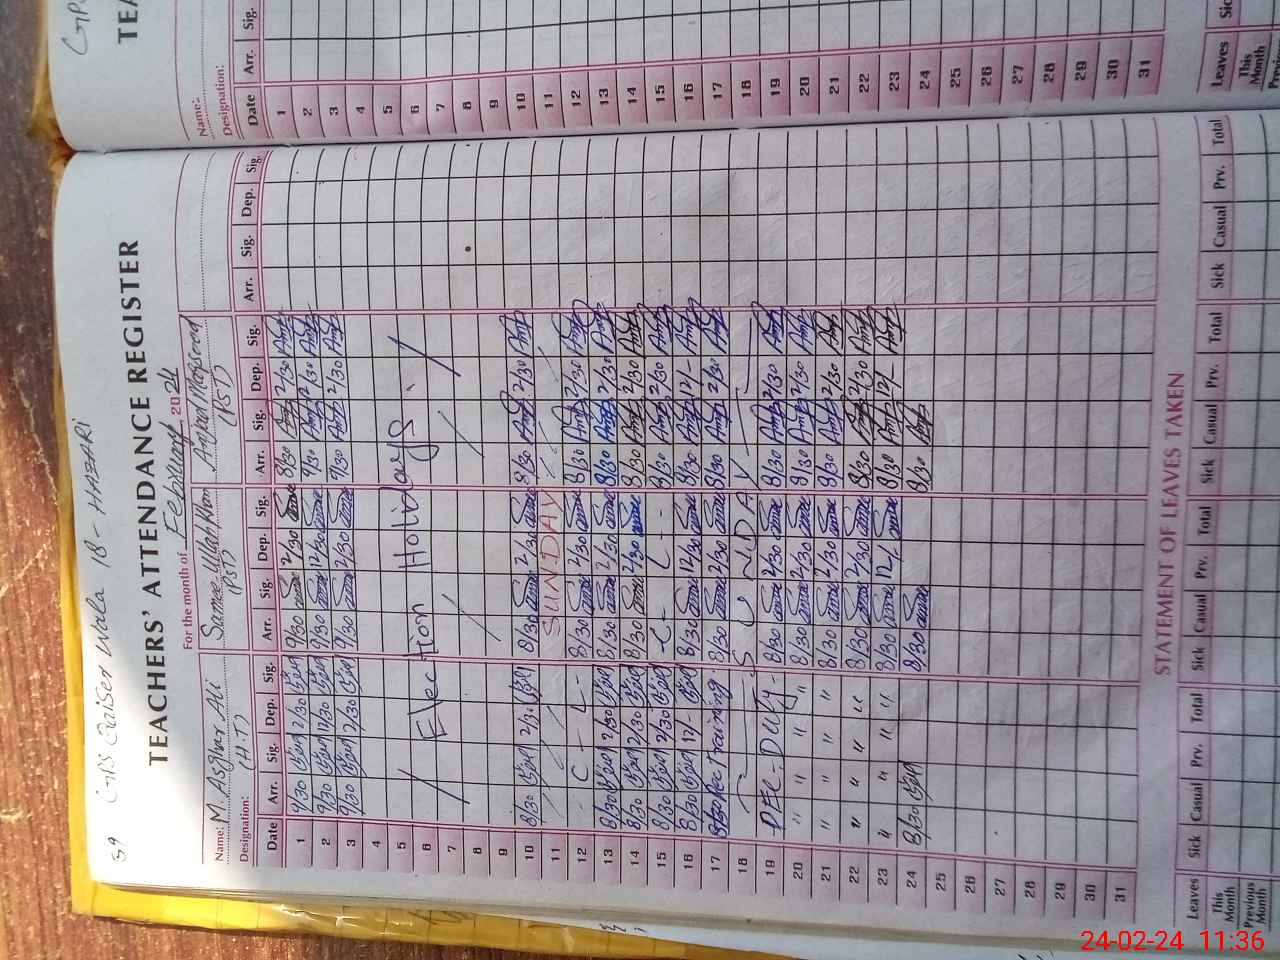 59 GPS Qaiser Wala 18-HAZARI
TEACHERS' ATTENDANCE REGISTER
For the month of February 2024
Name: M. Asgher Ali Samee Ullah Khan
Designation: (H.T) (PST) (PST)
Date Arr. Sig. Dep. Sig. Arr. Sig. Dep. Sig. Arr. Sig. Dep. Sig. Arr. Sig. Dep. Sig.
1 9/30 2/30 9/30 2/30 8/30 2/30
2 9/30 12/30 9/30 12/30 9/30 12/30
3 9/30 2/30 9/30 2/30 9/30 2/30
4
5
6 Election Holidays.
7
8
9
10 8/30 2/30 8/30 2/30 8/30 2/30
11 SUNDAY
12 C - L - 8/30 2/30 8/30 2/30
13 8/30 2/30 8/30 2/30 8/30 2/30
14 8/30 2/30 8/30 2/30 8/30 2/30
15 8/30 2/30 C - L - - 8/30 2/30
16 8/30 12/- 8/30 12/30 8/30 12/-
17 8/30 Training 8/30 2/30 8/30 2/30
18 SUNDAY
19 PEC. Duty - 8/30 2/30 8/30 2/30
20 " " " " 8/30 2/30 8/30 2/30
21 " " " " 8/30 2/30 8/30 2/30
22 " " " " 8/30 2/30 8/30 2/30
23 " " " " 8/30 12/- 8/30 12/-
24 8/30 8/30 8/30
25
26
27
28
29
30
31
STATEMENT OF LEAVES TAKEN
Leaves Sick Casual Prv. Total Sick Casual Prv. Total Sick Casual Prv. Total Sick Casual Prv. Total
This Month
Previous Month
TEA
Name:
Designation:
Date Arr. Sig.
1
2
3
4
5
6
7
8
9
10
11
12
13
14
15
16
17
18
19
20
21
22
23
24
25
26
27
28
29
30
31
Leaves Sic
This Month
24-02-24 11:36